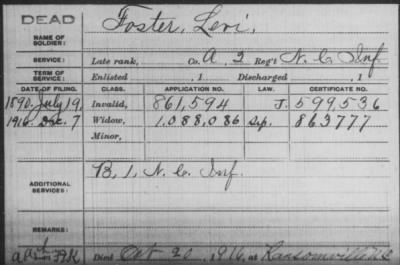 DEAD
Foster, Levi,
NAME OF SOLDIER:
SERVICE: Late rank, Co. A, 2 Reg't N. C. Inf
TERM OF SERVICE: Enlisted , 1 Discharged , 1
DATE OF FILING. CLASS. APPLICATION NO. LAW. CERTIFICATE NO.
1890. July 19, Invalid, 861,594 J. 599,536
1916. Dec. 7 Widow, 1,088,086 Sep. 863777
Minor,
ADDITIONAL SERVICES: B, 1, N. C. Inf.
REMARKS:
Died Oct 20, 1916, at Ransomville N.C.